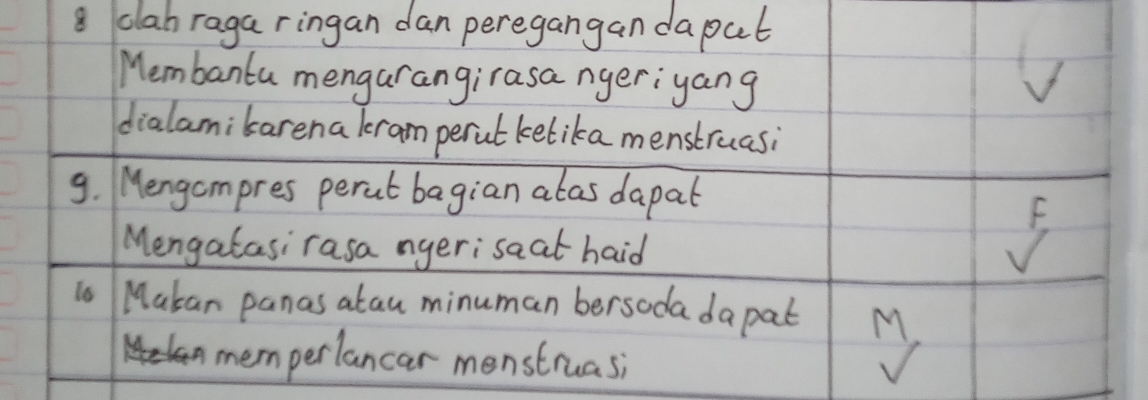 8 olah raga ringan dan peregangan dapat
Membantu mengurangi rasa nyeri yang
dialami karena kram perut ketika menstruasi
9. Mengompres perut bagian atas dapat
Mengatasi rasa nyeri saat haid
F
10 Makan panas atau minuman bersoda dapat
M
memperlancar menstruasi